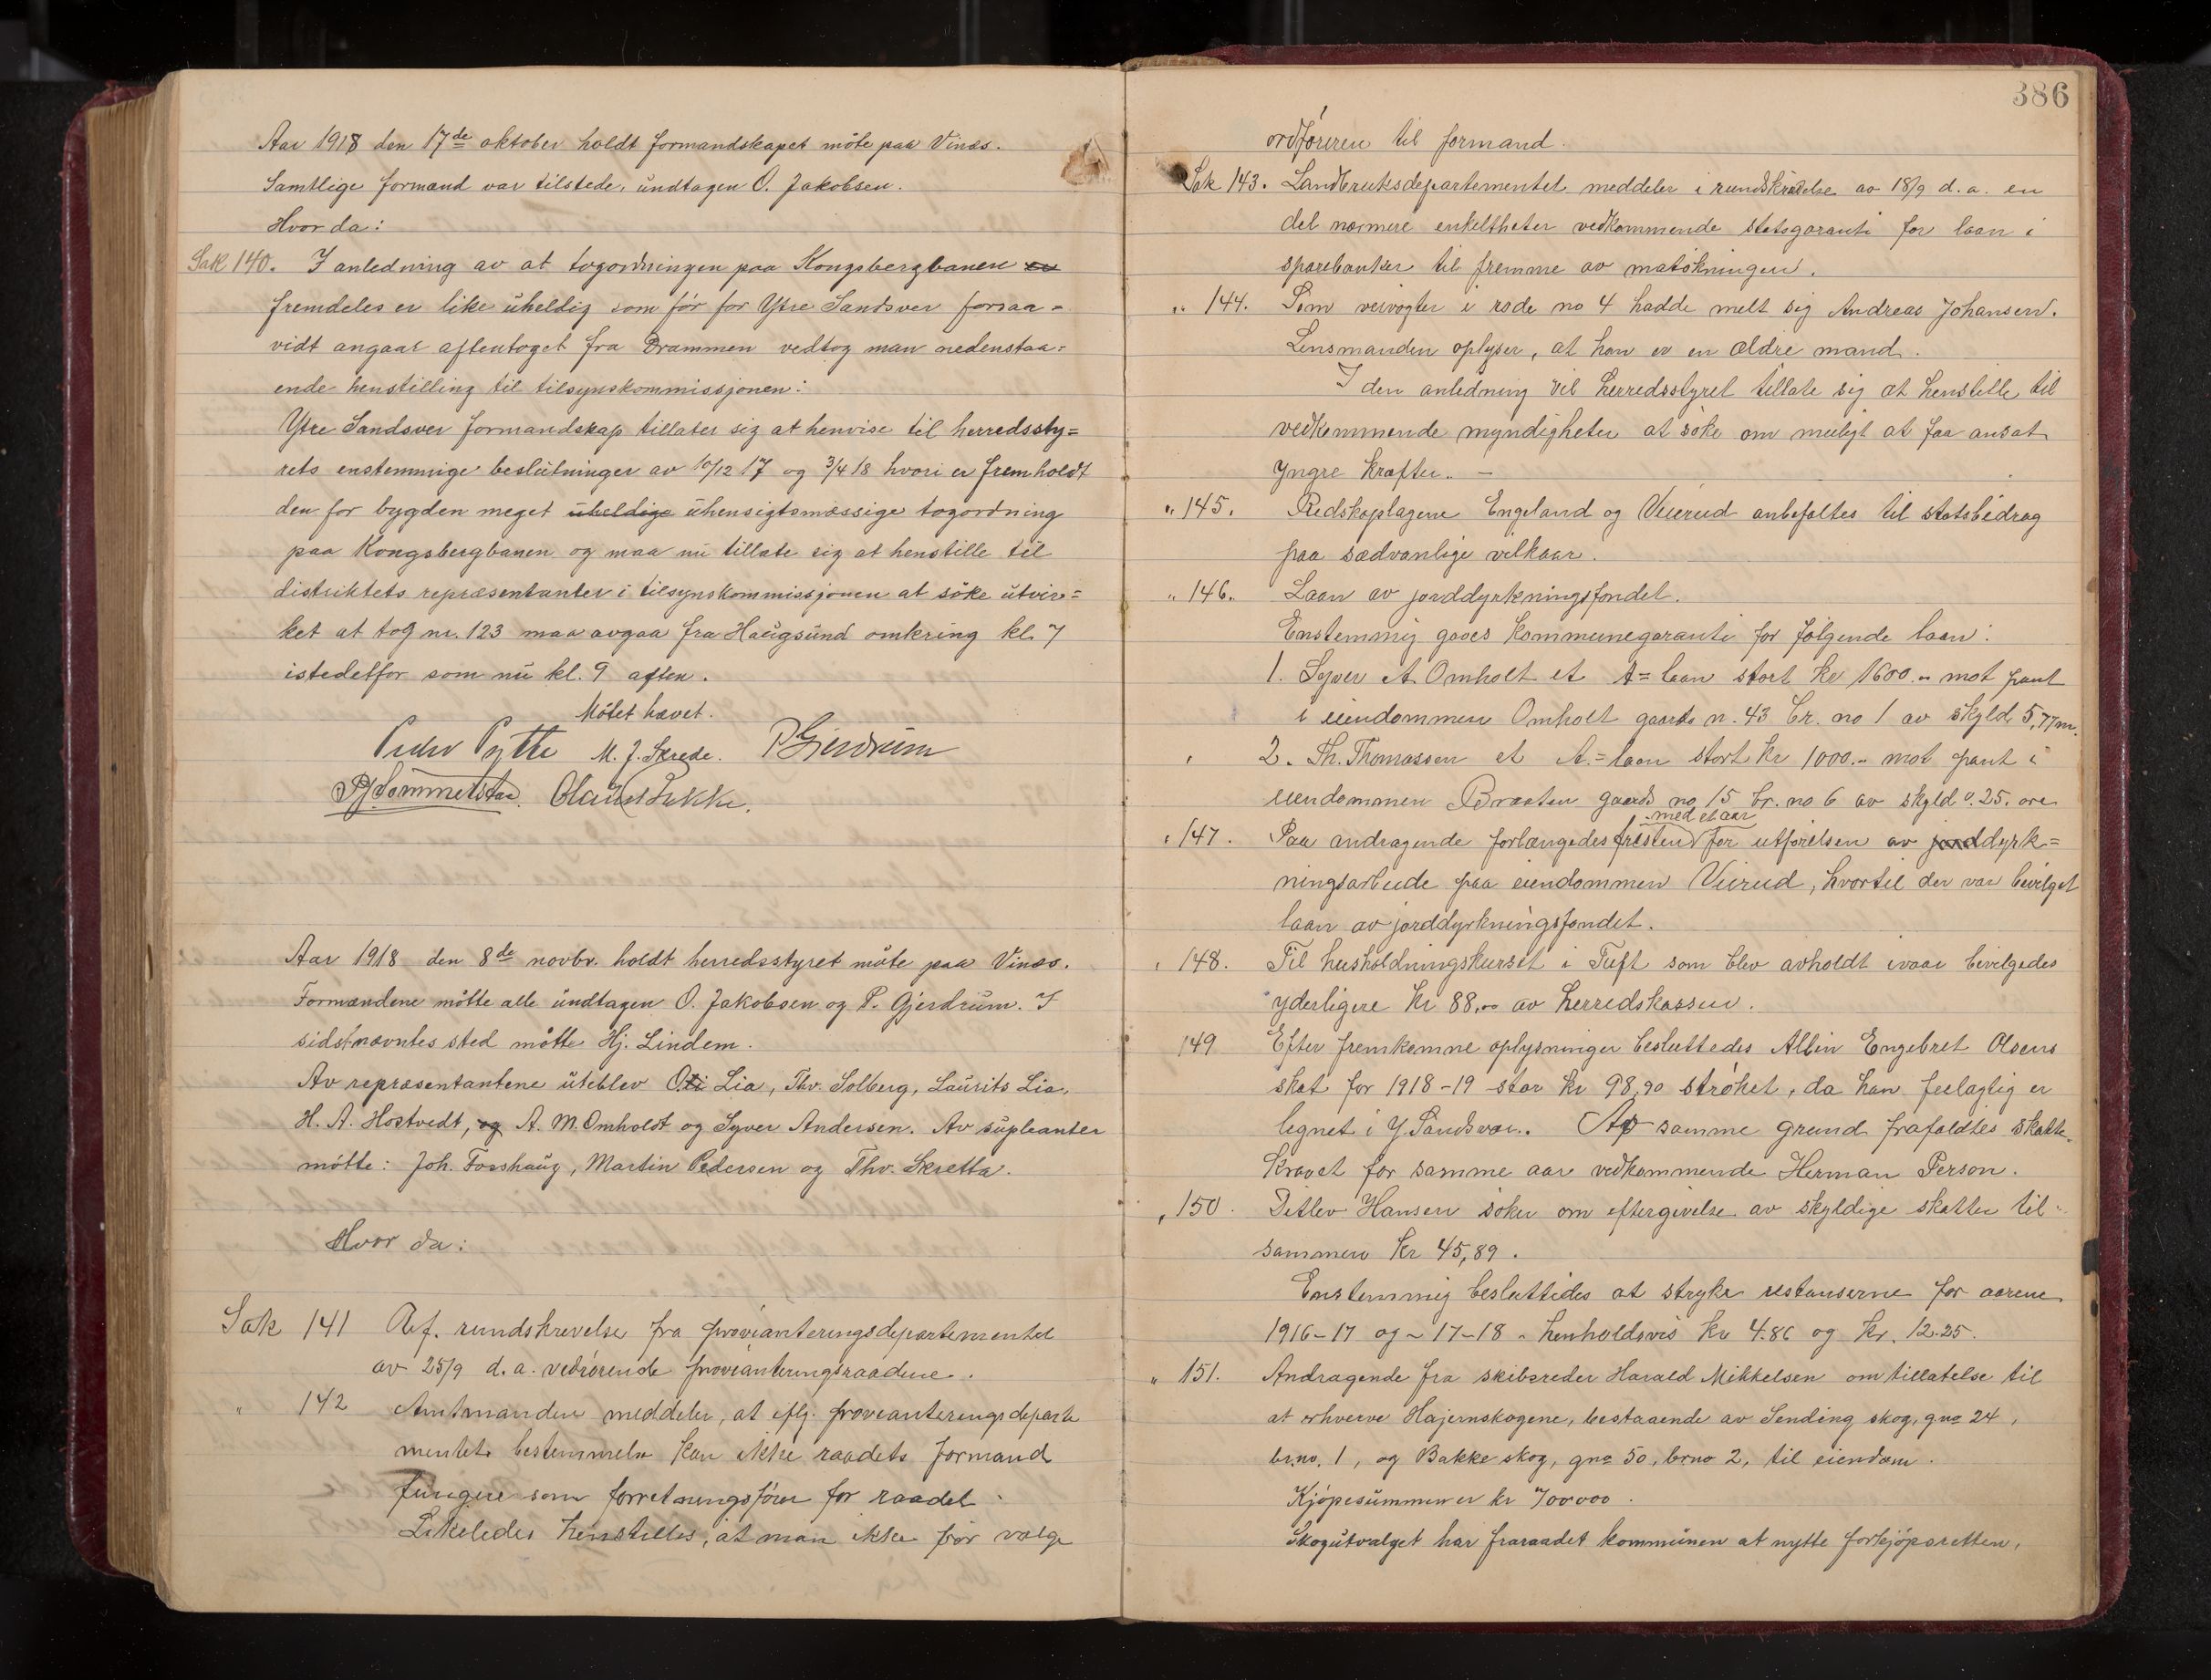 Aar 1918 den 17de oktober holdt formandskapet möte paa Vinæs.
Samtlige formænd var tilstede, undtagen O. Jakobsen.
Hvor da:
Sak 140. I anledning av at togordningen paa Kongsbergbanen er
fremdeles er like uheldig som før for Ytre Sandsver forsaa=
vidt angaar aftentoget fra Drammen vedtog man nedenstaa=
ende henstilling til tilsynskommissjonen:
Ytre Sandsver formandskap tillater sig at henvise til herredssty=
rets enstemmige beslutninger av 10/12 17 og 3/4 18 hvori er fremholdt
den for bygden meget uheldige uhensigtsmæssige togordning
paa Kongsbergbanen og maa nu tillate sig at henstille til
distriktets repræsentanter i tilsynskommissjonen at söke utvir=
ket at tog nr. 123 maa avgaa fra Haugsund omkring kl. 7
istedetfor som nu kl. 9 aften.
Mötet hævet.
Peder Pytte M. J. Skrede. P Gjerdrum
Ola Bakke.
Aar 1918 den 8de novbr. holdt herredsstyret möte paa Vinæs.
Formændene mötte alle undtagen O. Jakobsen og P. Gjerdrum. I
sidstnævntes sted mötte Hj. Lindem.
Av repræsentantene uteblev Oti Lia, Thv. Solberg, Laurits Lia,
H. A. Hostvedt, og A. M. Omholdt og Syver Andersen. Av supleanter
mötte: Joh. Fosshaug, Martin Pedersen og Thv. Skretta.
Hvor da:
Sak 141 Ref. rundskrevelse fra provianteringsdepartementet
av 25/9 d.a. vedrörende provianteringsraadene.
" 142 Amtmanden meddeler, at iflg. provianteringsdeparte
mentets bestemmelse kan ikke raadets formand
fungere som forretningsförer for raadet.
Likeledes henstilles, at man ikke før vælge
386
ordføreren til formand.
Sak 143. Landbruksdepartementet meddeler i rundskrivelse av 18/9 d.a. en
del nærmere enkeltheter vedkommende statsgaranti for laan i
sparebanker til fremme av matökningen.
" 144. Som veivogter i rode no 4 hadde melt sig Andreas Johansen.
Lensmanden oplyser, at han er en ældre mand.
I den anledning vil herredsstyret tillate sig at henstille til
vedkommende myndigheter at söke om muligt at faa ansat
yngre kræfter. —
" 145. Redskaplagene Engeland og Veierud anbefaltes til statsbidrag
paa sædvanlige vilkaar.
" 146. Laan av jorddyrkningsfondet.
Enstemmig gaves kommunegaranti for følgende laan:
1. Syver A Omholt et A= laan stort kr 1600.- mot pant
i eiendommen Omholt gaards n. 43 br. no 1 av skyld 5,77 m.
2. Th. Thomassen et A.= laan stort kr 1000.- mot pant i
eiendommen Braaten gaards no 15 br. no 6 av skyld 0.25. øre
med et aar
" 147. Paa andragende forlængedes fristen for utførelsen av jorddyrk=
ningsarbeide paa eiendommen Veierud, hvortil der var bevilget
laan av jorddyrkningsfondet.
" 148. Til husholdningskurset i Tuft som blev avholdt ivaar bevilgedes
yderligere kr 88.00 av herredskassen.
149 Efter fremkomne oplysninger besluttedes Albin Engebret Olsens
skat for 1918-19 stor kr 98,90 strøket, da han feilagtig er
lignet i Y. Sandsvær. Av samme grund frafaldtes skatte-
kravet for samme aar vedkommende Herman Person.
" 150. Ditlev Hansen søker om eftergivelse av skyldige skatter til-
sammen kr 45,89.
Enstemmig besluttedes at stryke restanserne for aarene
1916-17 og - 17-18 - henholdsvis kr 4.86 og kr. 12.25.
" 151. Andragende fra skibsreder Harald Mikkelsen om tillatelse til
at erhverve Hajernskogene, bestaaende av Sending skog, gno 24,
br.no. 1, og Bakke skog, gno 50, brno 2, til eiendom.
Kjøpesummen er kr 700000.
Skogutvalget har fraraadet kommunen at nytte forkjöpsretten,